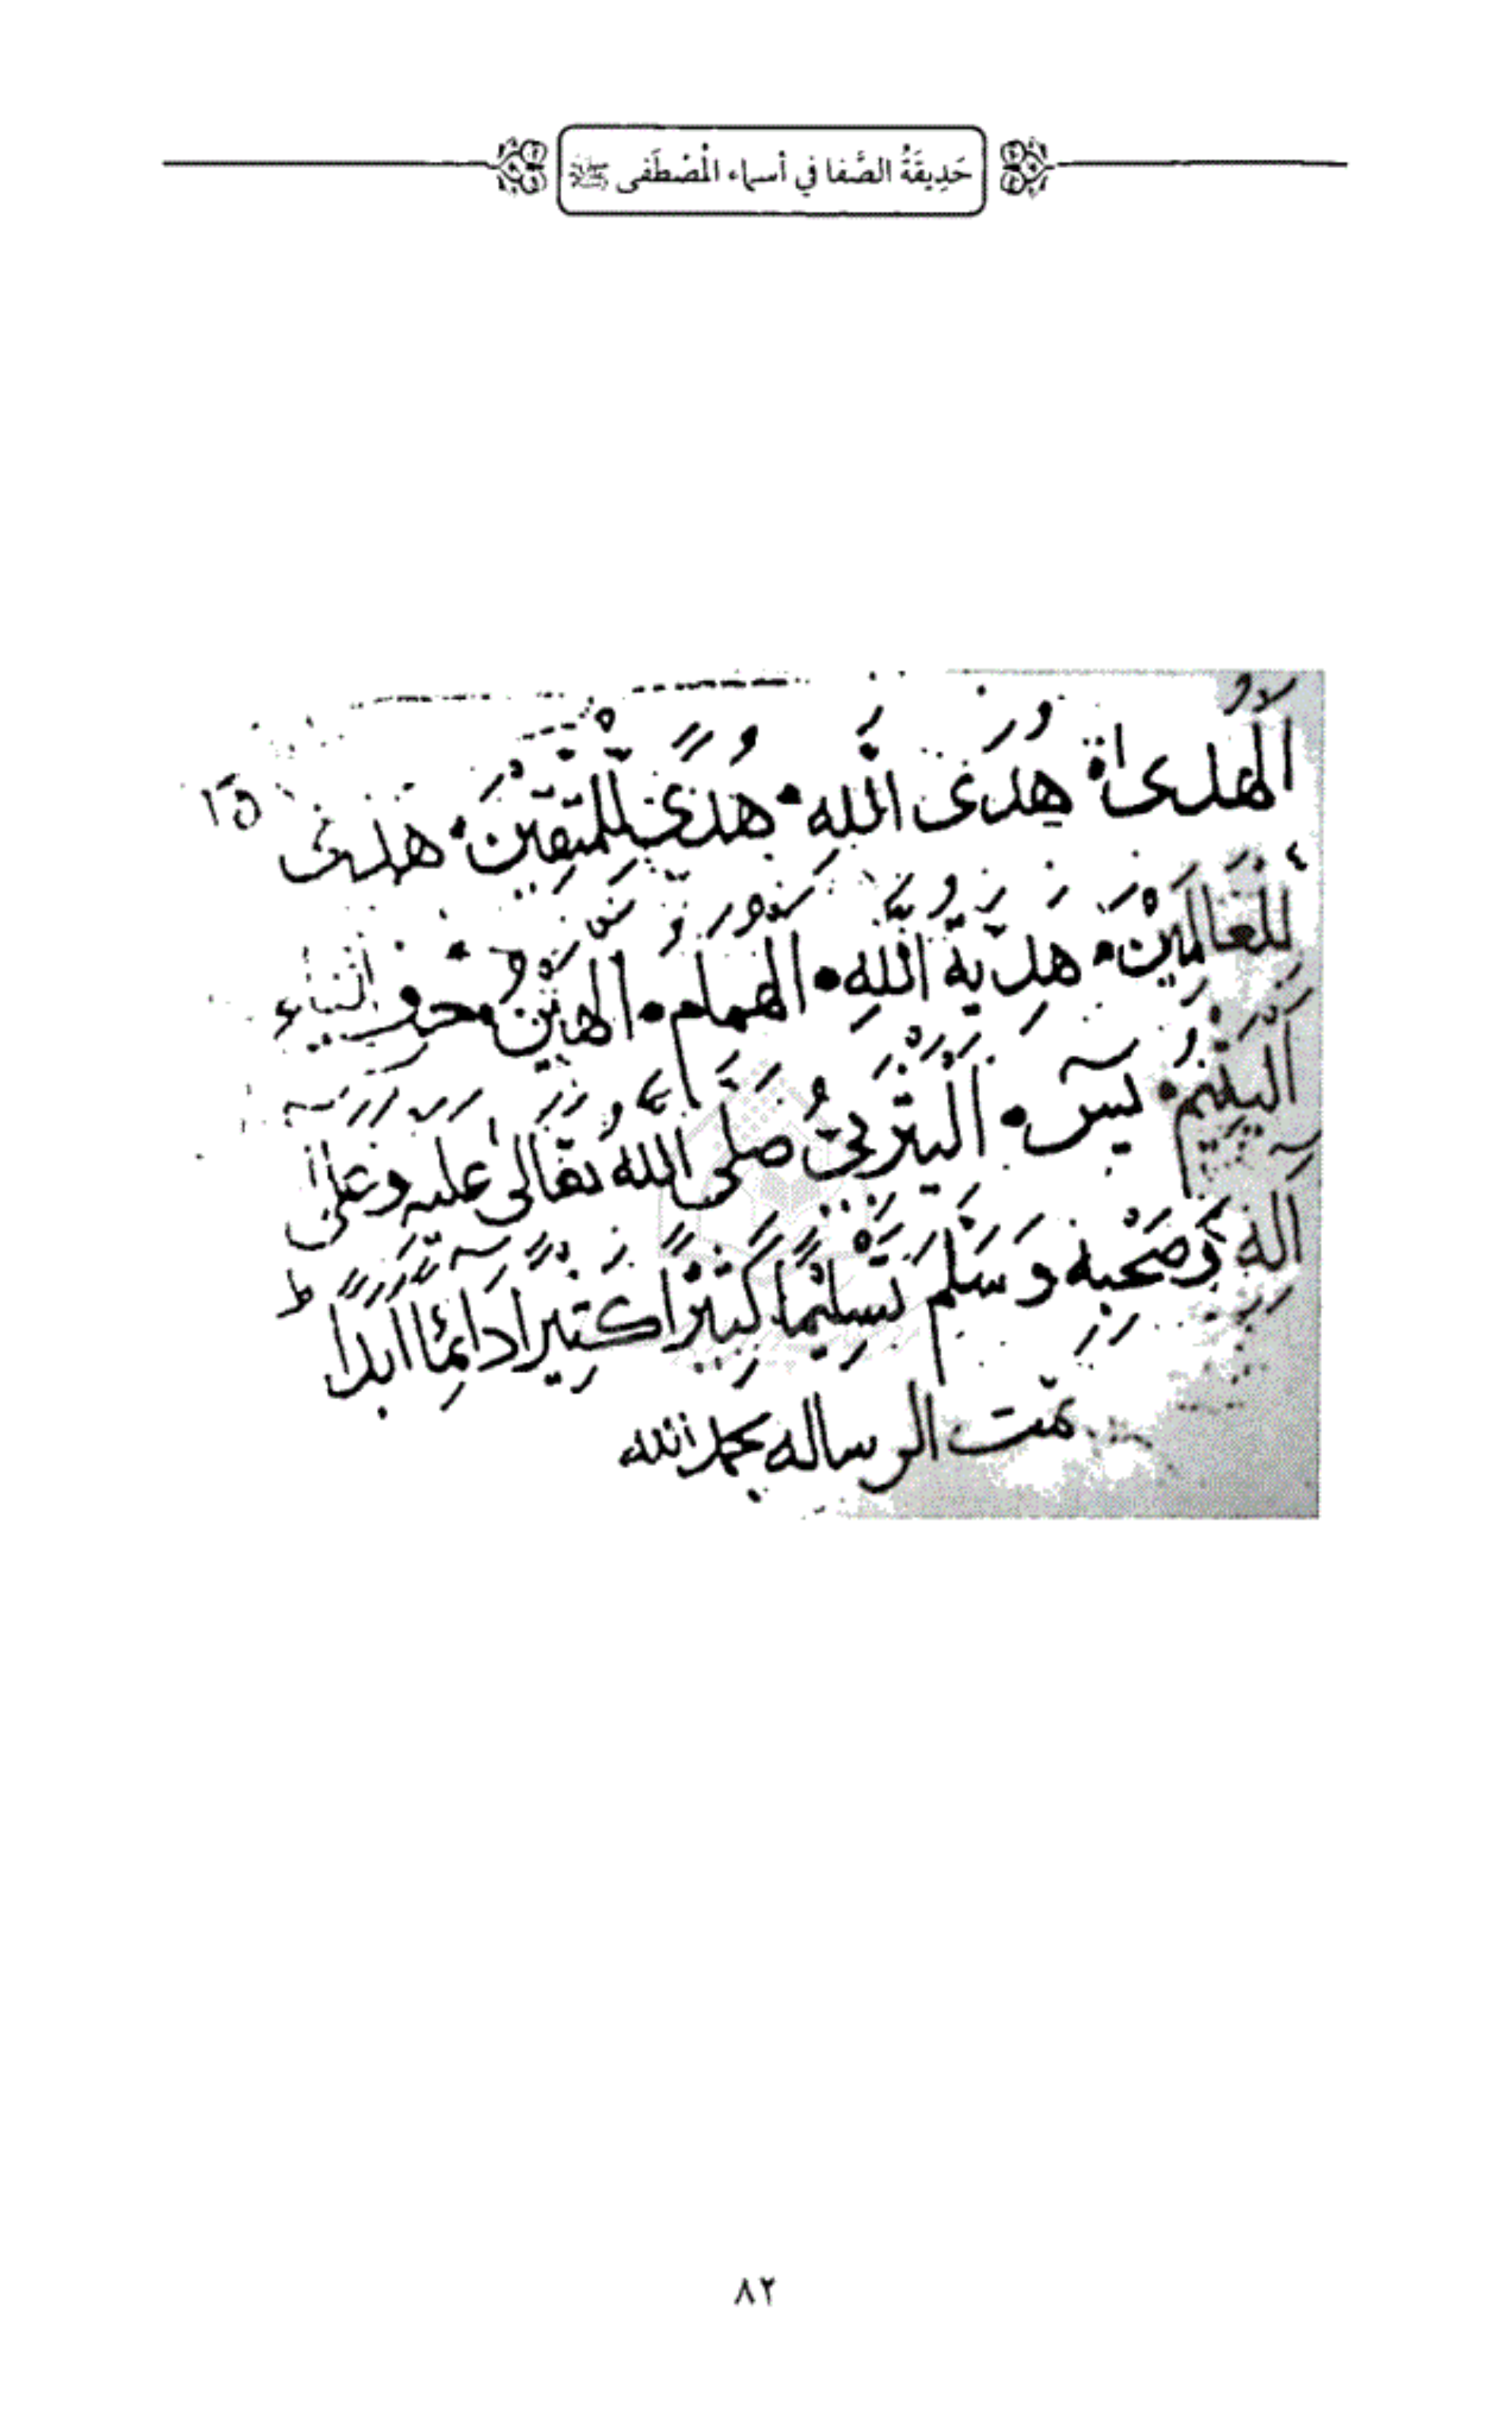 حَدِيقَةُ الصَّفا في أسماء الْمُصْطَفى ﷺ
اَلْهُدىاة هُدَى اللَّهِ هُدًى لِلْمُتَّقِيْنَ هُدًى ١٥
لِلْعَالَمِيْنَ هَدِيَّةُ اللَّهِ الْهُمَامُ الْهَيِّنُ حرف الياء
اَلْيَتِيْمُ يٰسٓ اَلْيَثْرَبِيُّ صَلَّى اللَّهُ تَعَالٰى عَلَيْهِ وَعَلٰى
آلِهِ وَصَحْبِهِ وَسَلَّمَ تَسْلِيْمًا كَثِيْرًا كَثِيْرًا دَائِمًا اَبَدًا ط
تمت الرساله بحمد الله
٨٢